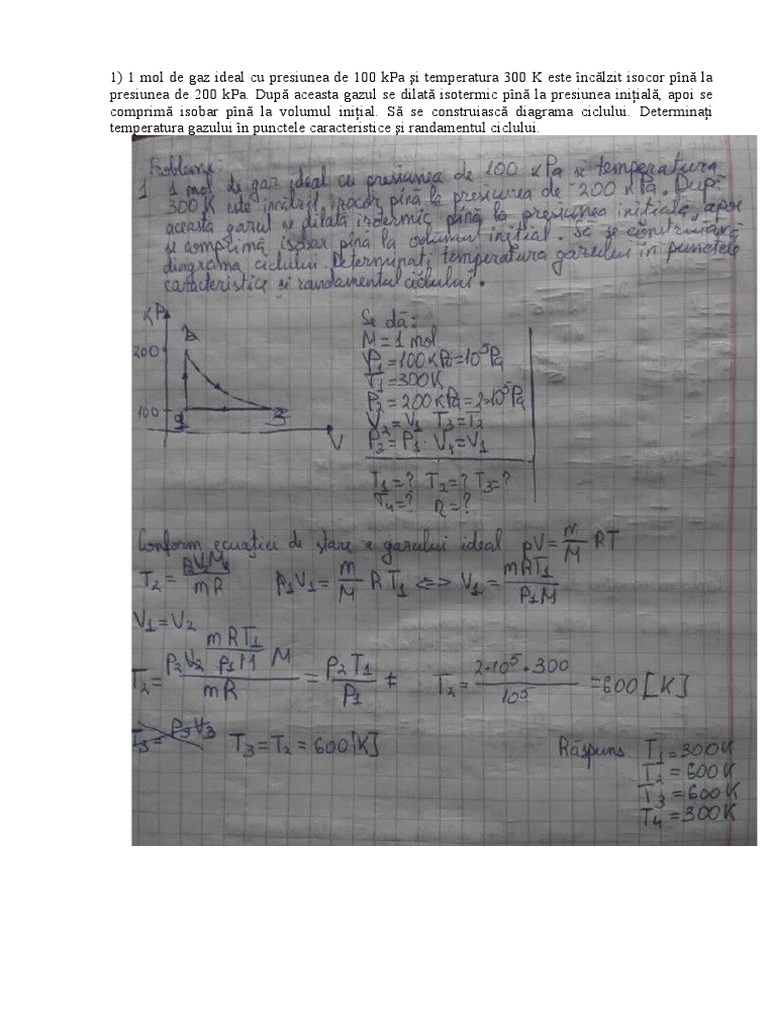 1) 1 mol de gaz ideal cu presiunea de 100 kPa și temperatura 300 K este încălzit isocor pînă la
presiunea de 200 kPa. După aceasta gazul se dilată isotermic pînă la presiunea inițială, apoi se
comprimă isobar pînă la volumul inițial. Să se construiască diagrama ciclului. Determinați
temperatura gazului în punctele caracteristice și randamentul ciclului.
Probleme:
1 1 mol de gaz ideal cu presiunea de 100 kPa și temperatura
300 K este încălzit izocor pînă la presiunea de 200 kPa. După
aceasta gazul se dilată izotermic pînă la presiunea inițială, apoi
se comprimă isobar pîna la volumul inițial. Să se construiască
diagrama ciclului. Determinați temperatura gazului în punctele
caracteristice și randamentul ciclului.
kPa
200
2
100
1
3
V
Se dă:
M=1 mol
P₁=100KPa=10⁵Pa
T₁=300K
P₂=200KPa=2·10⁵Pa
V₂=V₁ T₃=T₂
P₂=P₁· V₄=V₁
T₁=? T₂=? T₃=?
T₄=? η=?
Conform ecuației de stare a gazului ideal pV=m/M RT
T₂= P₂V₂M/mR p₁V₁= m/M RT₁ <=> V₁= mRT₁/P₁M
V₁=V₂
T₂= P₂V₂ mRT₁/P₁M M/mR = P₂T₁/P₁ T₂= 2·10⁵·300/10⁵ =600[K]
T₃= P₃V₃ T₃=T₂=600[K]
Răspuns: T₁=300K
T₂=600K
T₃=600K
T₄=300K